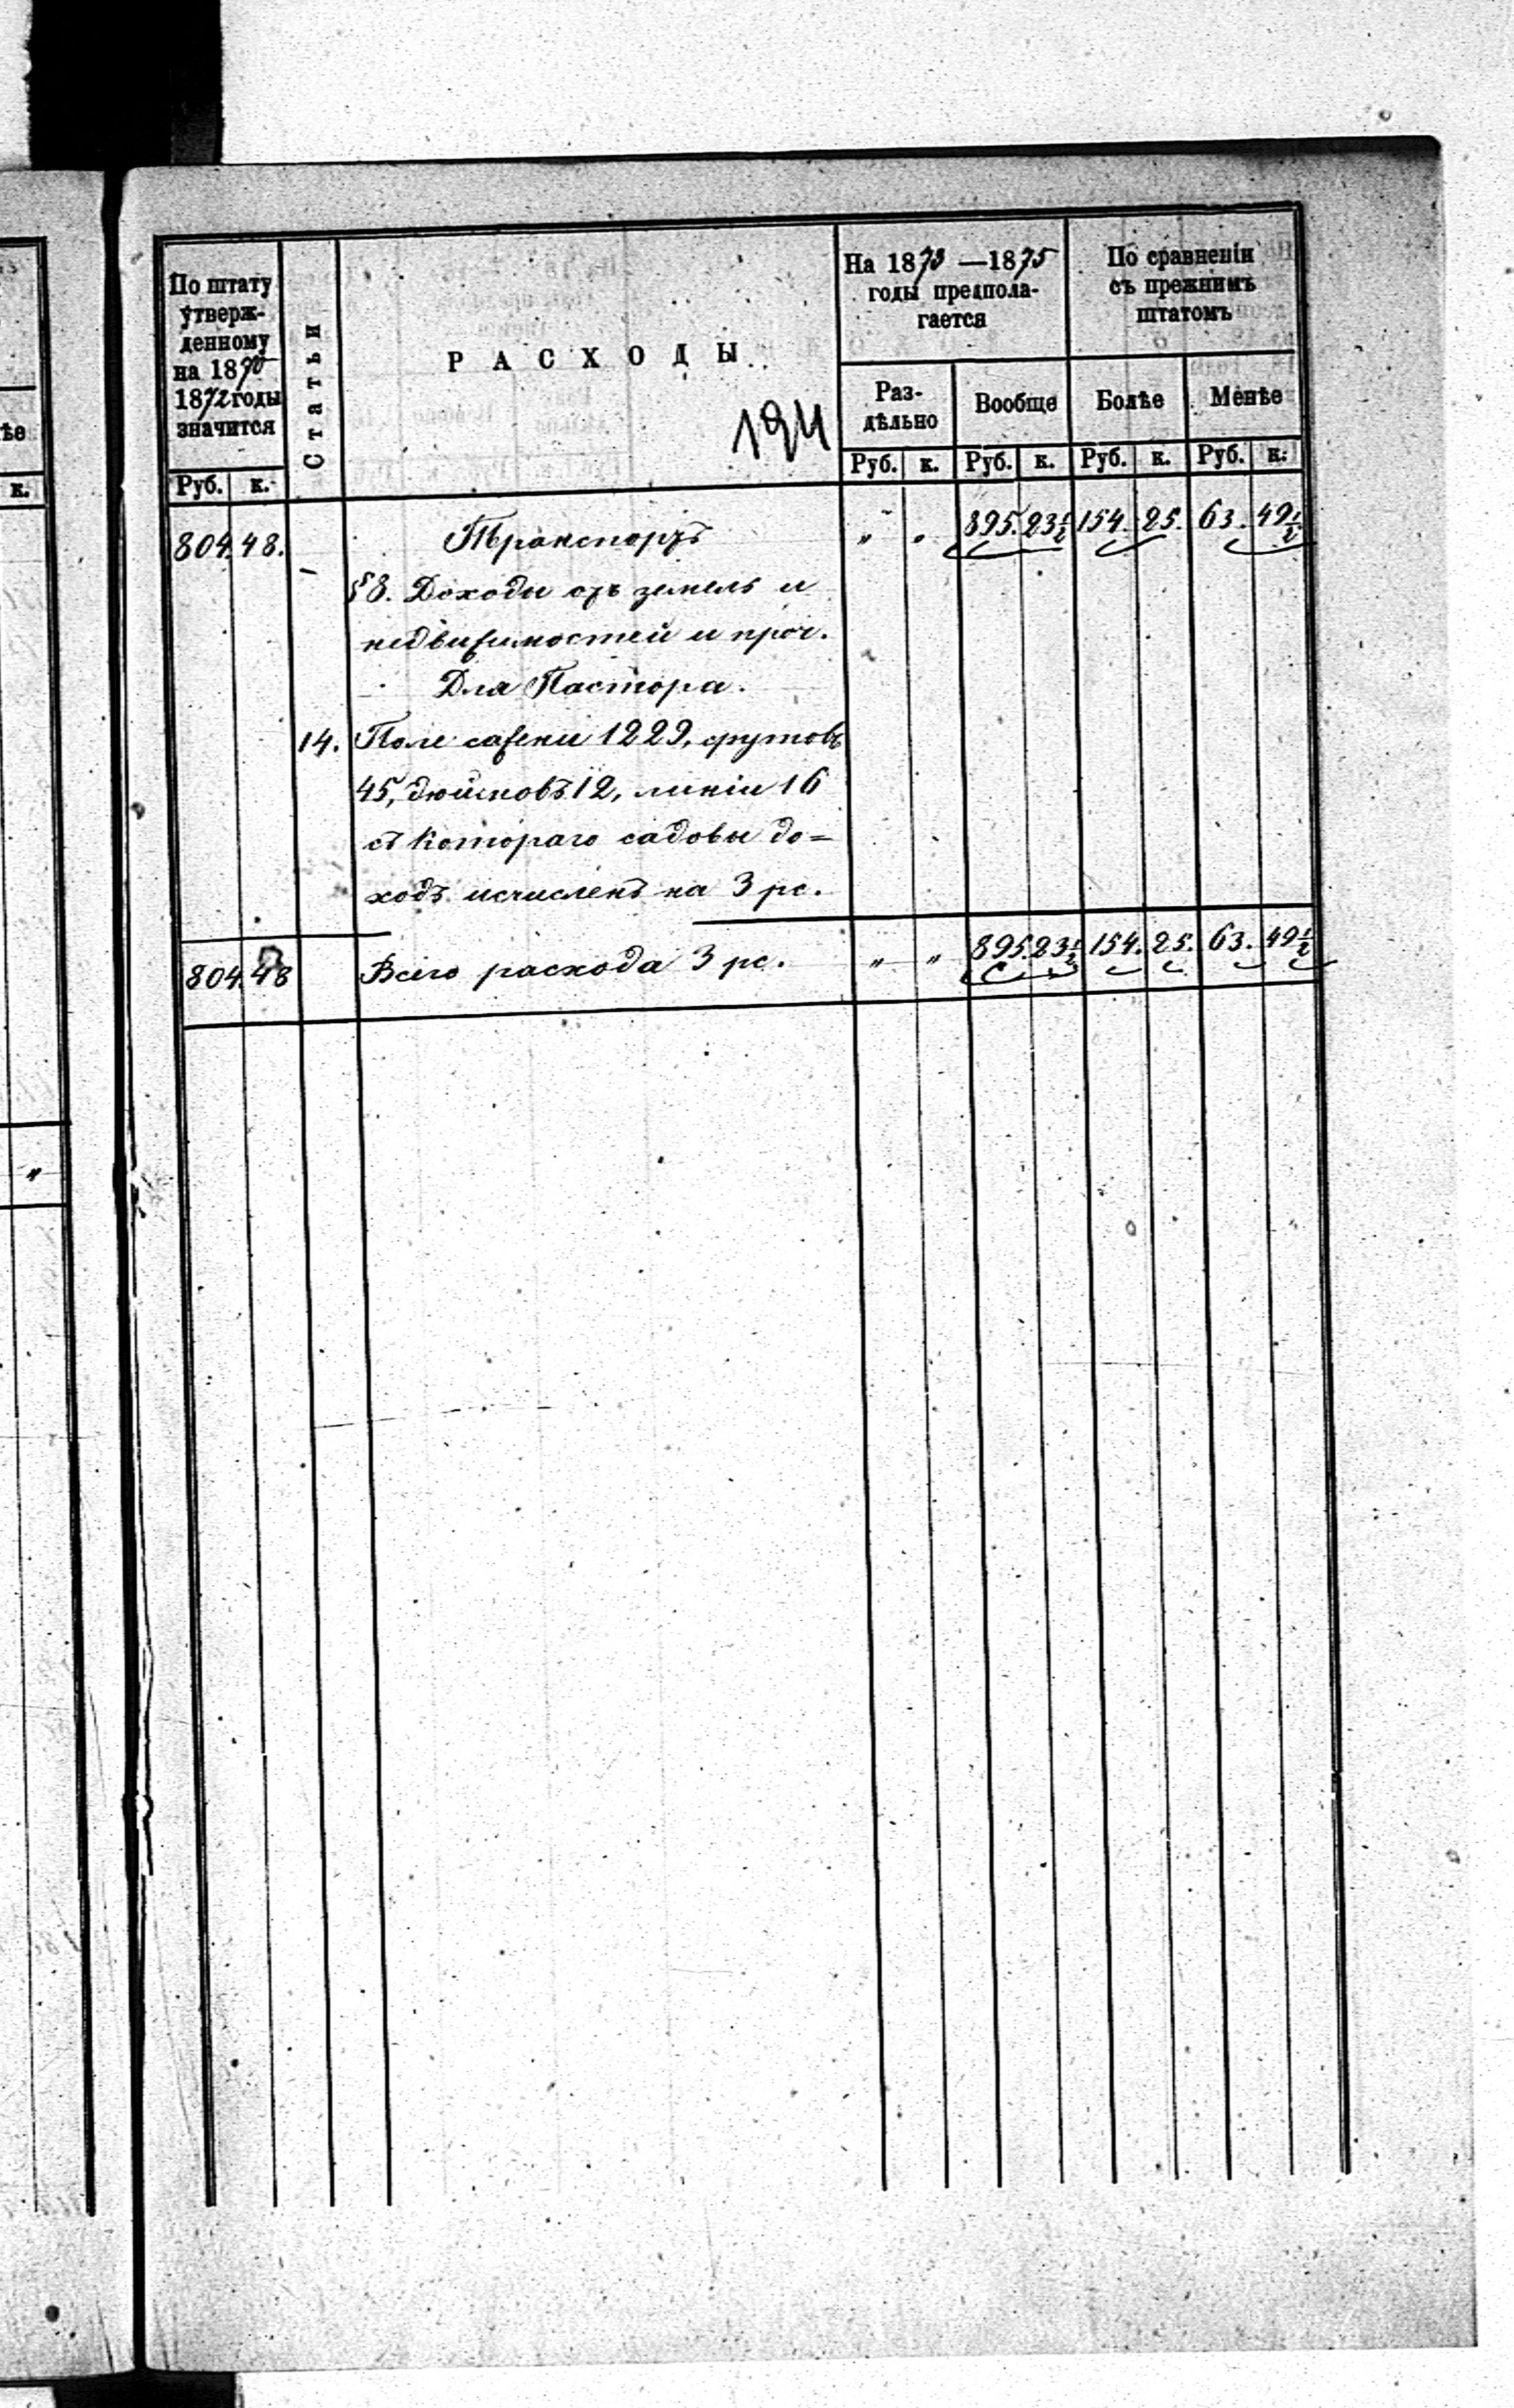 По штату
утверж-
денному
на 1870
1872 годы
значится
Статьи
РАСХОДЫ
194
На 1873 —1875
годы предпола-
гается
По сравненіи
съ прежнимъ
штатомъ
Раз-
дѣльно
Вообще
Болѣе
Менѣе
Руб. к.
Руб. к. Руб. к. Руб. к. Руб. к.
ѣе
к.
804. 48. Транспортъ " " 895. 23½ 154. 25. 63. 49½
§ 8. Доходы отъ земель и
недвижимостей и проч.
Для Пастора.
14. Поле сажени 1229, футовъ
45, дюймовъ 12, линіи 16
съ котораго садовы до=
ходъ исчисленъ на 3 рс.
804. 48 Всего расхода 3 рс. " " 895. 23½ 154. 25. 63. 49½
"